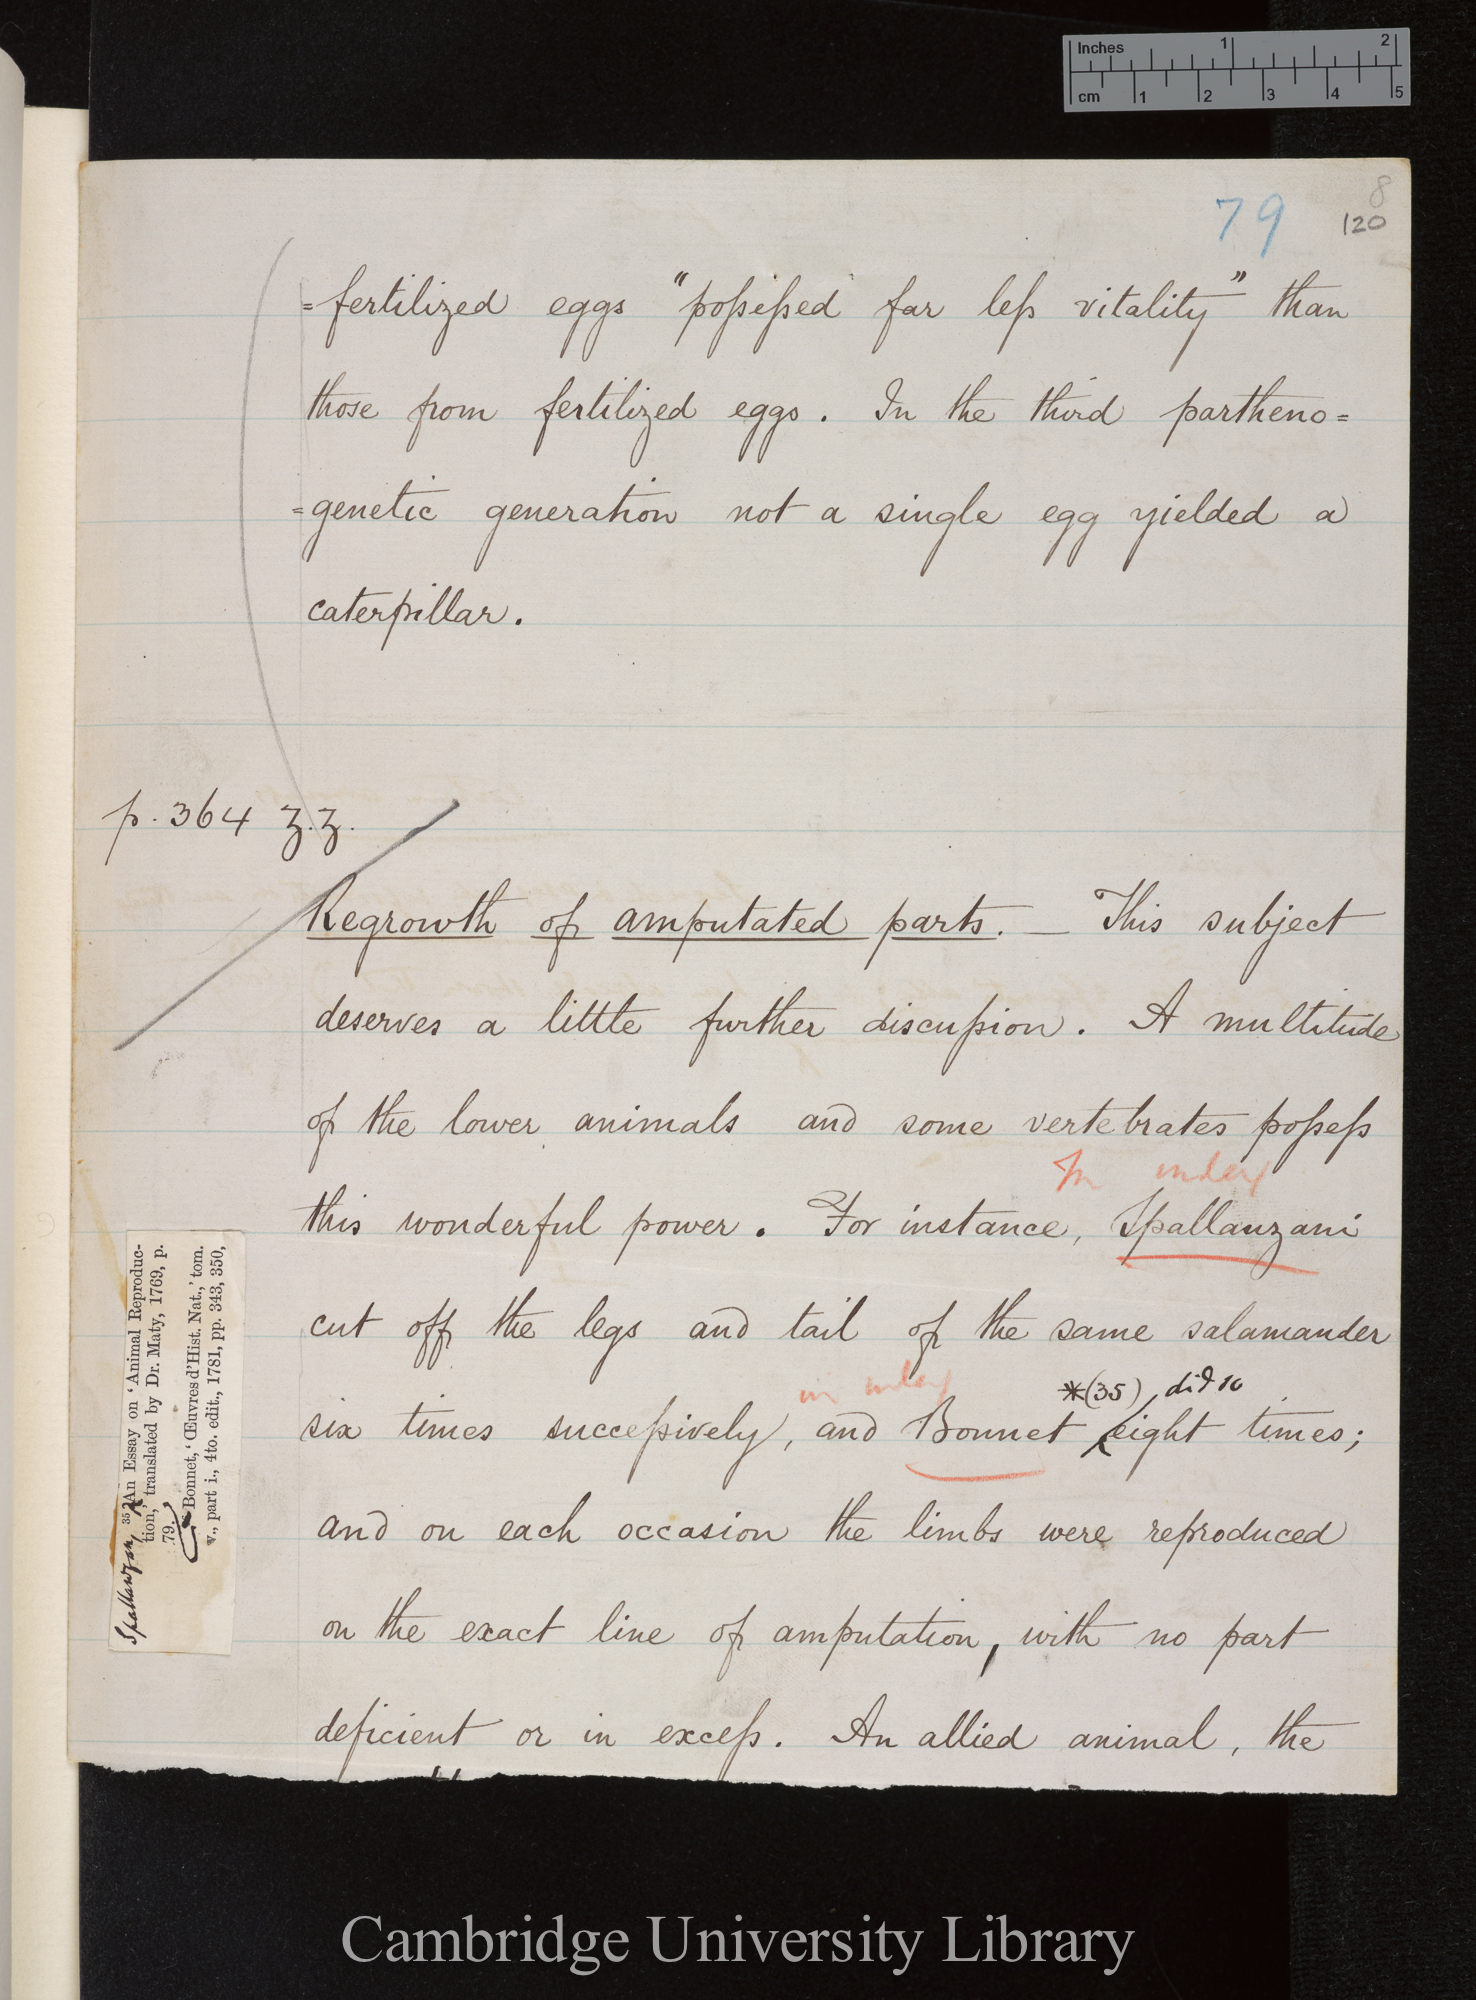 Inches 1 2
cm 1 2 3 4 5
79
8
120
=fertilized eggs "possessed far less vitality" than
those from fertilized eggs. In the third partheno=
=genetic generation not a single egg yielded a
caterpillar.
p. 364 z.z.
Regrowth of amputated parts. — This subject
deserves a little further discussion. A multitude
of the lower animals and some vertebrates possess
In index
this wonderful power. For instance, Spallanzani
cut off the legs and tail of the same salamander
in index *(35), did so
six times successively, and Bonnet eight times;
and on each occasion the limbs were reproduced
on the exact line of amputation, with no part
deficient or in excess. An allied animal, the
Spallanzani, 35 An Essay on 'Animal Reproduc-
tion,' translated by Dr. Maty, 1769, p.
79.
Bonnet, 'Œuvres d'Hist. Nat.,' tom.
v., part i., 4to. edit., 1781, pp. 343, 350,
Cambridge University Library